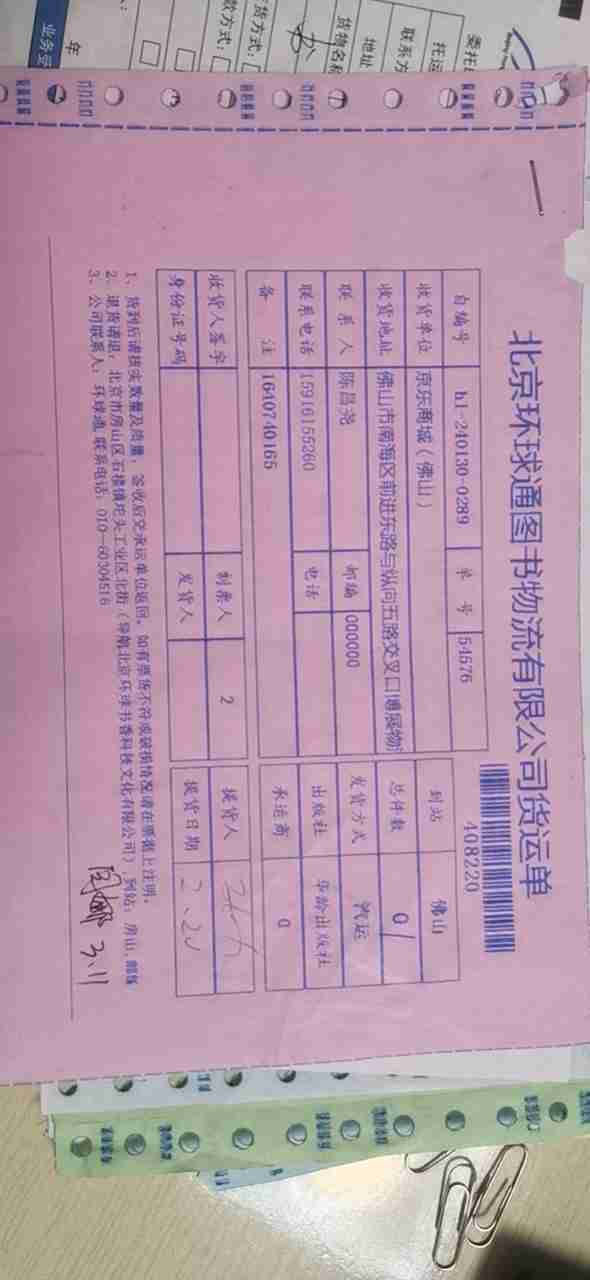 北京环球通图书物流有限公司货运单
408220
自编号 h1-240130-0289 单 号 54576
收货单位 京东商城(佛山)
收货地址 佛山市南海区前进东路与纵向五路交叉口博展物流
联 系 人 陈昌尧 邮 编 000000
联系电话 15916155260 电 话
备 注 1640740165
收货人签字 制票人 2
身份证号码 发货人
到站 佛山
总件数 01
发货方式 汽运
出版社 华龄出版社
承运商 0
提货人
提货日期 2.20
1、货到后请核实数量及质量,签收后交承运单位返回。如有票货不符或破损情况,请在票据上注明。
2、退货请退:北京市房山区石楼镇坨头工业区北街(导航北京环球书香科技文化有限公司)到站:房山,邮编
3、公司联系人:环球通,联系电话:010-60304516
3.11
委托
托运
联系方
地址
货物名称
货方式:
款方式:
年
业务受